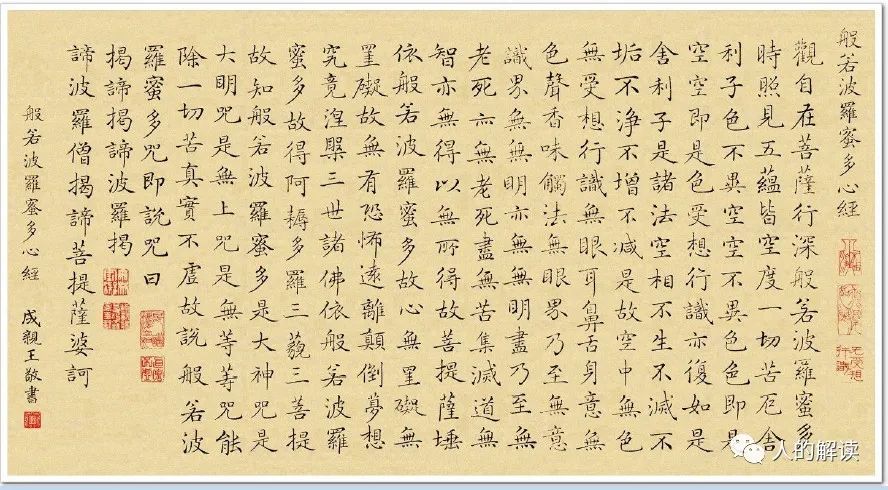 般若波羅蜜多心經
觀自在菩薩行深般若波羅蜜多
時照見五蘊皆空度一切苦厄舍
利子色不異空空不異色色即是
空空即是色受想行識亦復如是
舍利子是諸法空相不生不滅不
垢不淨不增不減是故空中無色
無受想行識無眼耳鼻舌身意無
色聲香味觸法無眼界乃至無意
識界無無明亦無無明盡乃至無
老死亦無老死盡無苦集滅道無
智亦無得以無所得故菩提薩埵
依般若波羅蜜多故心無罣礙無
罣礙故無有恐怖遠離顛倒夢想
究竟涅槃三世諸佛依般若波羅
蜜多故得阿耨多羅三藐三菩提
故知般若波羅蜜多是大神咒是
大明咒是無上咒是無等等咒能
除一切苦真實不虛故說般若波
羅蜜多咒即說咒曰
揭諦揭諦波羅揭
諦波羅僧揭諦菩提薩婆訶
般若波羅蜜多心經 成親王敬書
人的解读